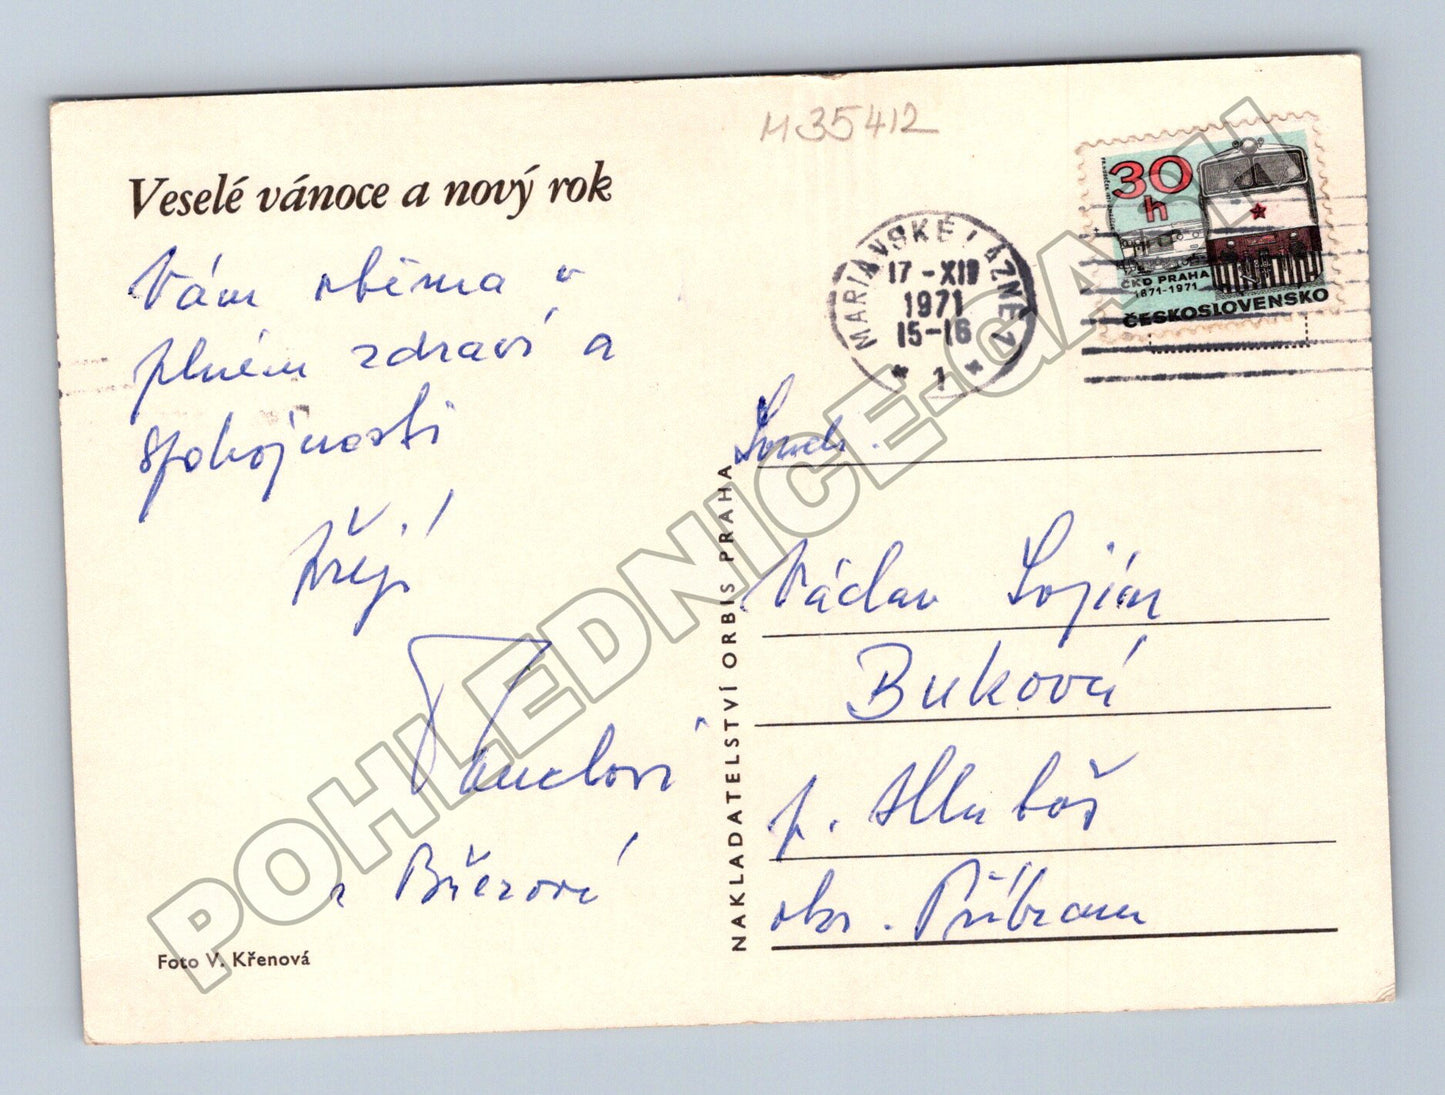 M35412
Veselé vánoce a nový rok
Vám oběma v
plném zdraví a
spokojnosti
přejí
z Březové
Foto V. Křenová
NAKLADATELSTVÍ ORBIS PRAHA
MARIÁNSKÉ LÁZNĚ 1
17-XII
1971
15-16
* 1 *
30
h
ČKD PRAHA
1871-1971
ČESKOSLOVENSKO
Soudr.
Václav
Buková
p. Hluboš
okr. Příbram
POHLEDNICE-GASH